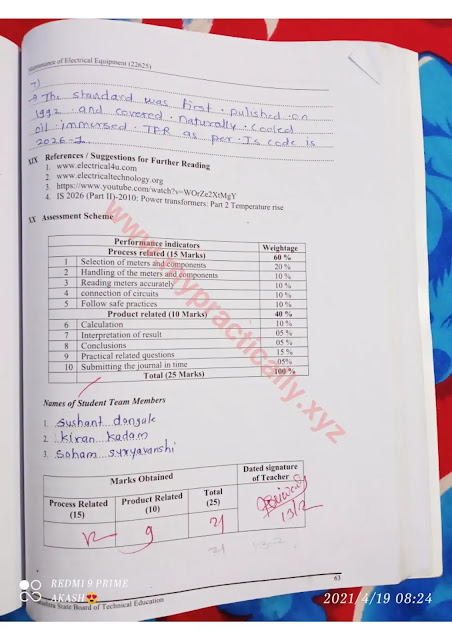 Maintenance of Electrical Equipment (22625)
7)
→ The standard was first pulished on
1992 and covered naturally cooled
oil immersed TPR as per Is code is
2026-1.
XIX References / Suggestions for Further Reading
1. www.electrical4u.com
2. www.electricaltechnology.org
3. https://www.youtube.com/watch?v=WOrZe2XtMgY
4. IS 2026 (Part II)-2010: Power transformers: Part 2 Temperature rise
XX Assessment Scheme
Performance indicators Weightage
Process related (15 Marks) 60 %
1 Selection of meters and components 20 %
2 Handling of the meters and components 10 %
3 Reading meters accurately 10 %
4 connection of circuits 10 %
5 Follow safe practices 10 %
Product related (10 Marks) 40 %
6 Calculation 10 %
7 Interpretation of result 05 %
8 Conclusions 05 %
9 Practical related questions 15 %
10 Submitting the journal in time 05%
Total (25 Marks) 100 %
www.mypractically.xyz
Names of Student Team Members
1. Sushant dongale
2. Kiran kadam
3. Soham suryavanshi
Marks Obtained Dated signature of Teacher
Process Related (15) Product Related (10) Total (25)
12 9 21
13/2
21
63
State Board of Technical Education
REDMI 9 PRIME
AKASH😍
2021/4/19 08:24